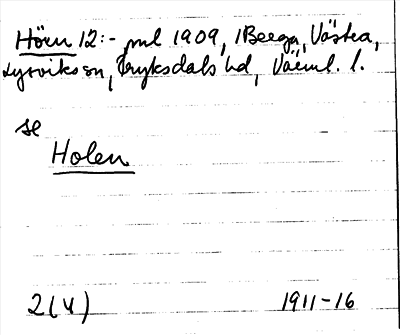 Hörn 12:- ml 1909, /Berga, Västra,
Lysviks sn, Fryksdals hd, Värml. l.
se
Holen
2(4) 1911-16